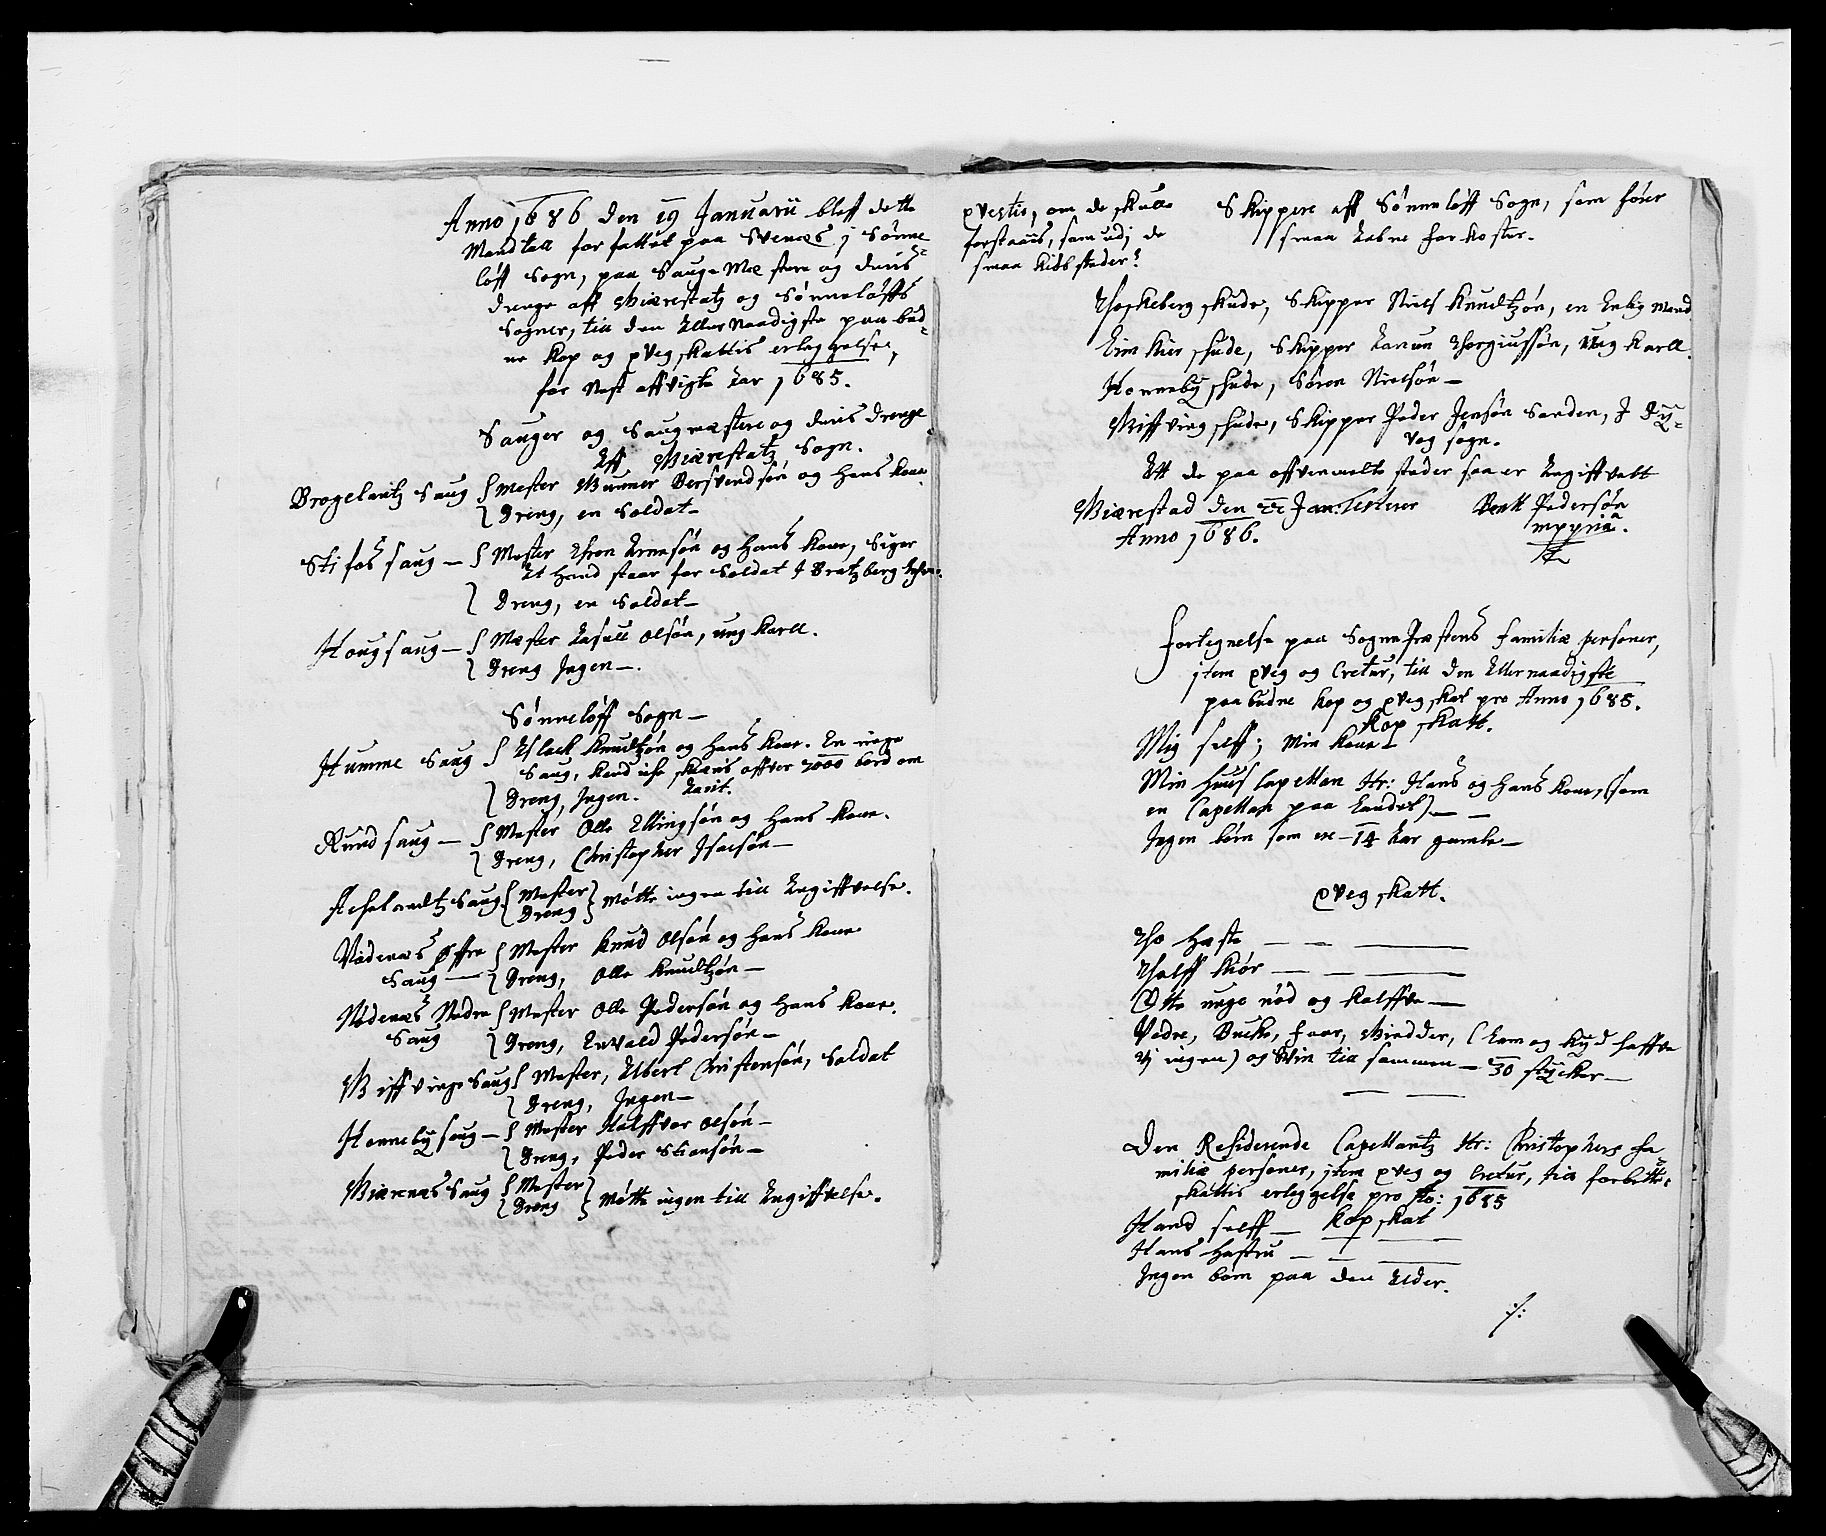 Anno 1686 den 19 Januarii bleff dette
Mandtall forfattet paa Svenes j Sønne
løff Sogn, paa Saugmestere og deris
drenge aff Giærestatz og Sønneløffs
Sogner, till den Allernaadigste paabud
ne Kop og qvegskattis erleggelse,
for Nest affvigte Aar 1685.
Sauger og Saugmestere og deris drenge
Aff Giærestatz Sogn.
Brogelantz Saug Mester Gunner Bersvendsøn og hans Kone
Dreng, en Soldat
Stifoss saug Mester Aron Arnesøn og hans Kone, Siger
At hand staar for Soldat J Bratzberg
Dreng, en Soldat
Hougsaug Mester Tasull Olsøn, ung Karll.
Dreng Jngen
Sønneløff Sogn
Humme Saug Aslack Knudtzøn og hans Kone. En ringe
Saug, Kand iche skæris offver 2000 bord om
Dreng, Jngen. Aarit.
Rundsaug Mester Olle Ellingsøn og hans Kone.
Dreng, Christopher Jsacsøn
Achelandtz Saug Mester Dreng Møtte ingen till Angiffvelse.
Nødenes Øffre Mester Knud Olsøn og hans Kone
Saug Dreng, Olle Knudtzøn
Nødenes Nedre Mester Olle Pedersøn og hans Kone.
Saug Dreng, Envald Pedersøn
Giffvinge Saug Mester, Albert Christensøn, Soldat
Dreng, Jngen
Honnebysaug Mester Halffvor Olsøn
Dreng, Peder Stiensøn
Giærenes Saug Mester Dreng Møtte ingen till Angiffvelse.
qvestio, om de skulle
forstaais, som udj de
smaa Kiøbsteder?
Skippere aff Sønneløff Sogn, som fører
smaa aabne farkoster.
Torkeberg skude, Skipper Niels Knudtzøn, en Enlig Mand
Eimkier skude, Skipper Aanun Torgiussøn, Ung Karll.
Honneby skude, Søren Nielsøn
Giffving skude, Skipper Peder Jensøn Sanden, J Dy-
vog sogn.
At de paa offvermelte steder saa er Angiffvett
Giærestad den 22 Jan: Testerer Bent Pedersøn
Anno 1686. mppria.
Fortegnelse paa SognePræstens familiæ personer,
jtem qveg og Cretur, till den Allernaadigste
paabudne Kop og qvegskat pro Anno 1685.
Kopskatt.
Mig selff; Min Kone
Min huus Capellan Hr: Hans og hans Kone, (som
en Capellan paa Landet)
Jngen børn som ere 14 Aar gamle
qvegskatt.
To Heste
Tolff Kiør
Otte unge nød og Kalffve
Vedre, Bucke, faar, Gieder, (Lam og Kid haffve
vj ingen) og Svin till sammen 30 stycker
Den Residerende Capellantz Hr: Christophers fa
miliæ personer, jtem qveg og Cretur, till forbette
skattis erleggelse pro Ao: 1685
Hand selff Kopskat
Hans Hustru 1
Jngen børn paa den Alder.